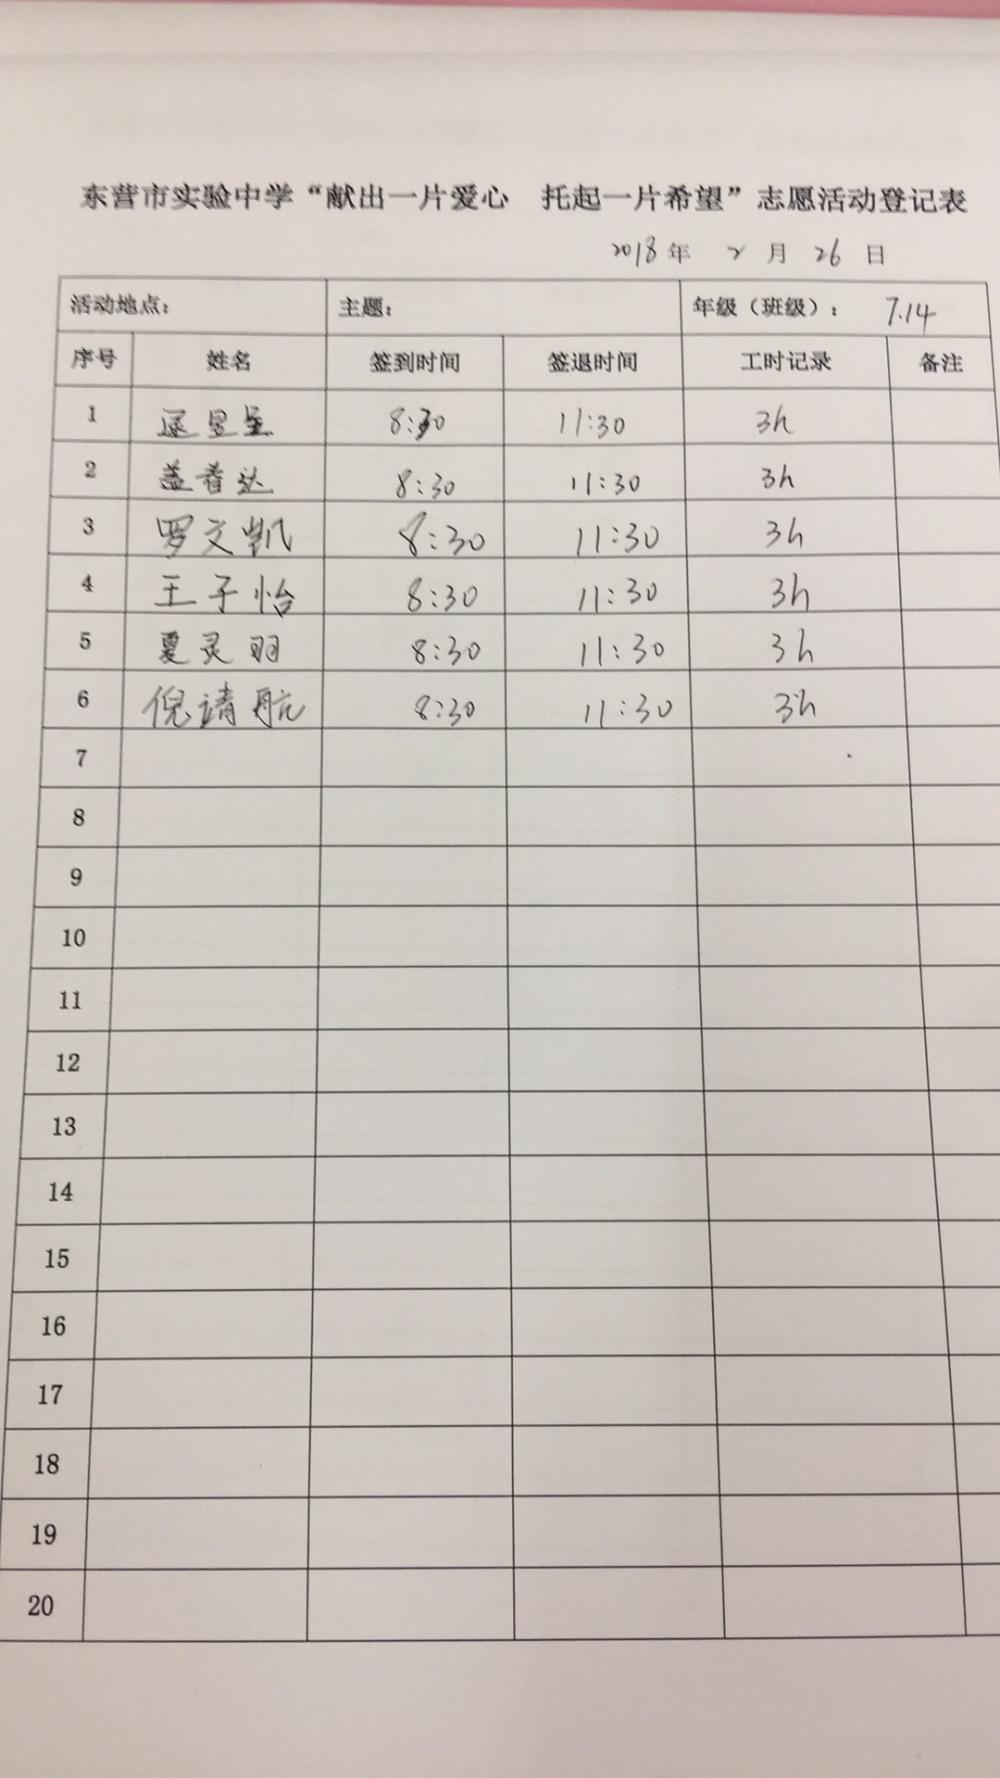 东营市实验中学“献出一片爱心 托起一片希望”志愿活动登记表
2018年 2月 26日
活动地点： 主题： 年级（班级）： 7.14
序号 姓名 签到时间 签退时间 工时记录 备注
1 8:30 11:30 3h
2 盖着达 8:30 11:30 3h
3 罗文凯 8:30 11:30 3h
4 王子怡 8:30 11:30 3h
5 夏灵羽 8:30 11:30 3h
6 倪靖航 8:30 11:30 3h
7
8
9
10
11
12
13
14
15
16
17
18
19
20